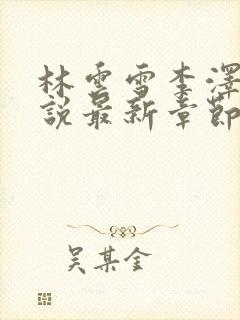 林雲雪李澤
說最新章節
吳某金